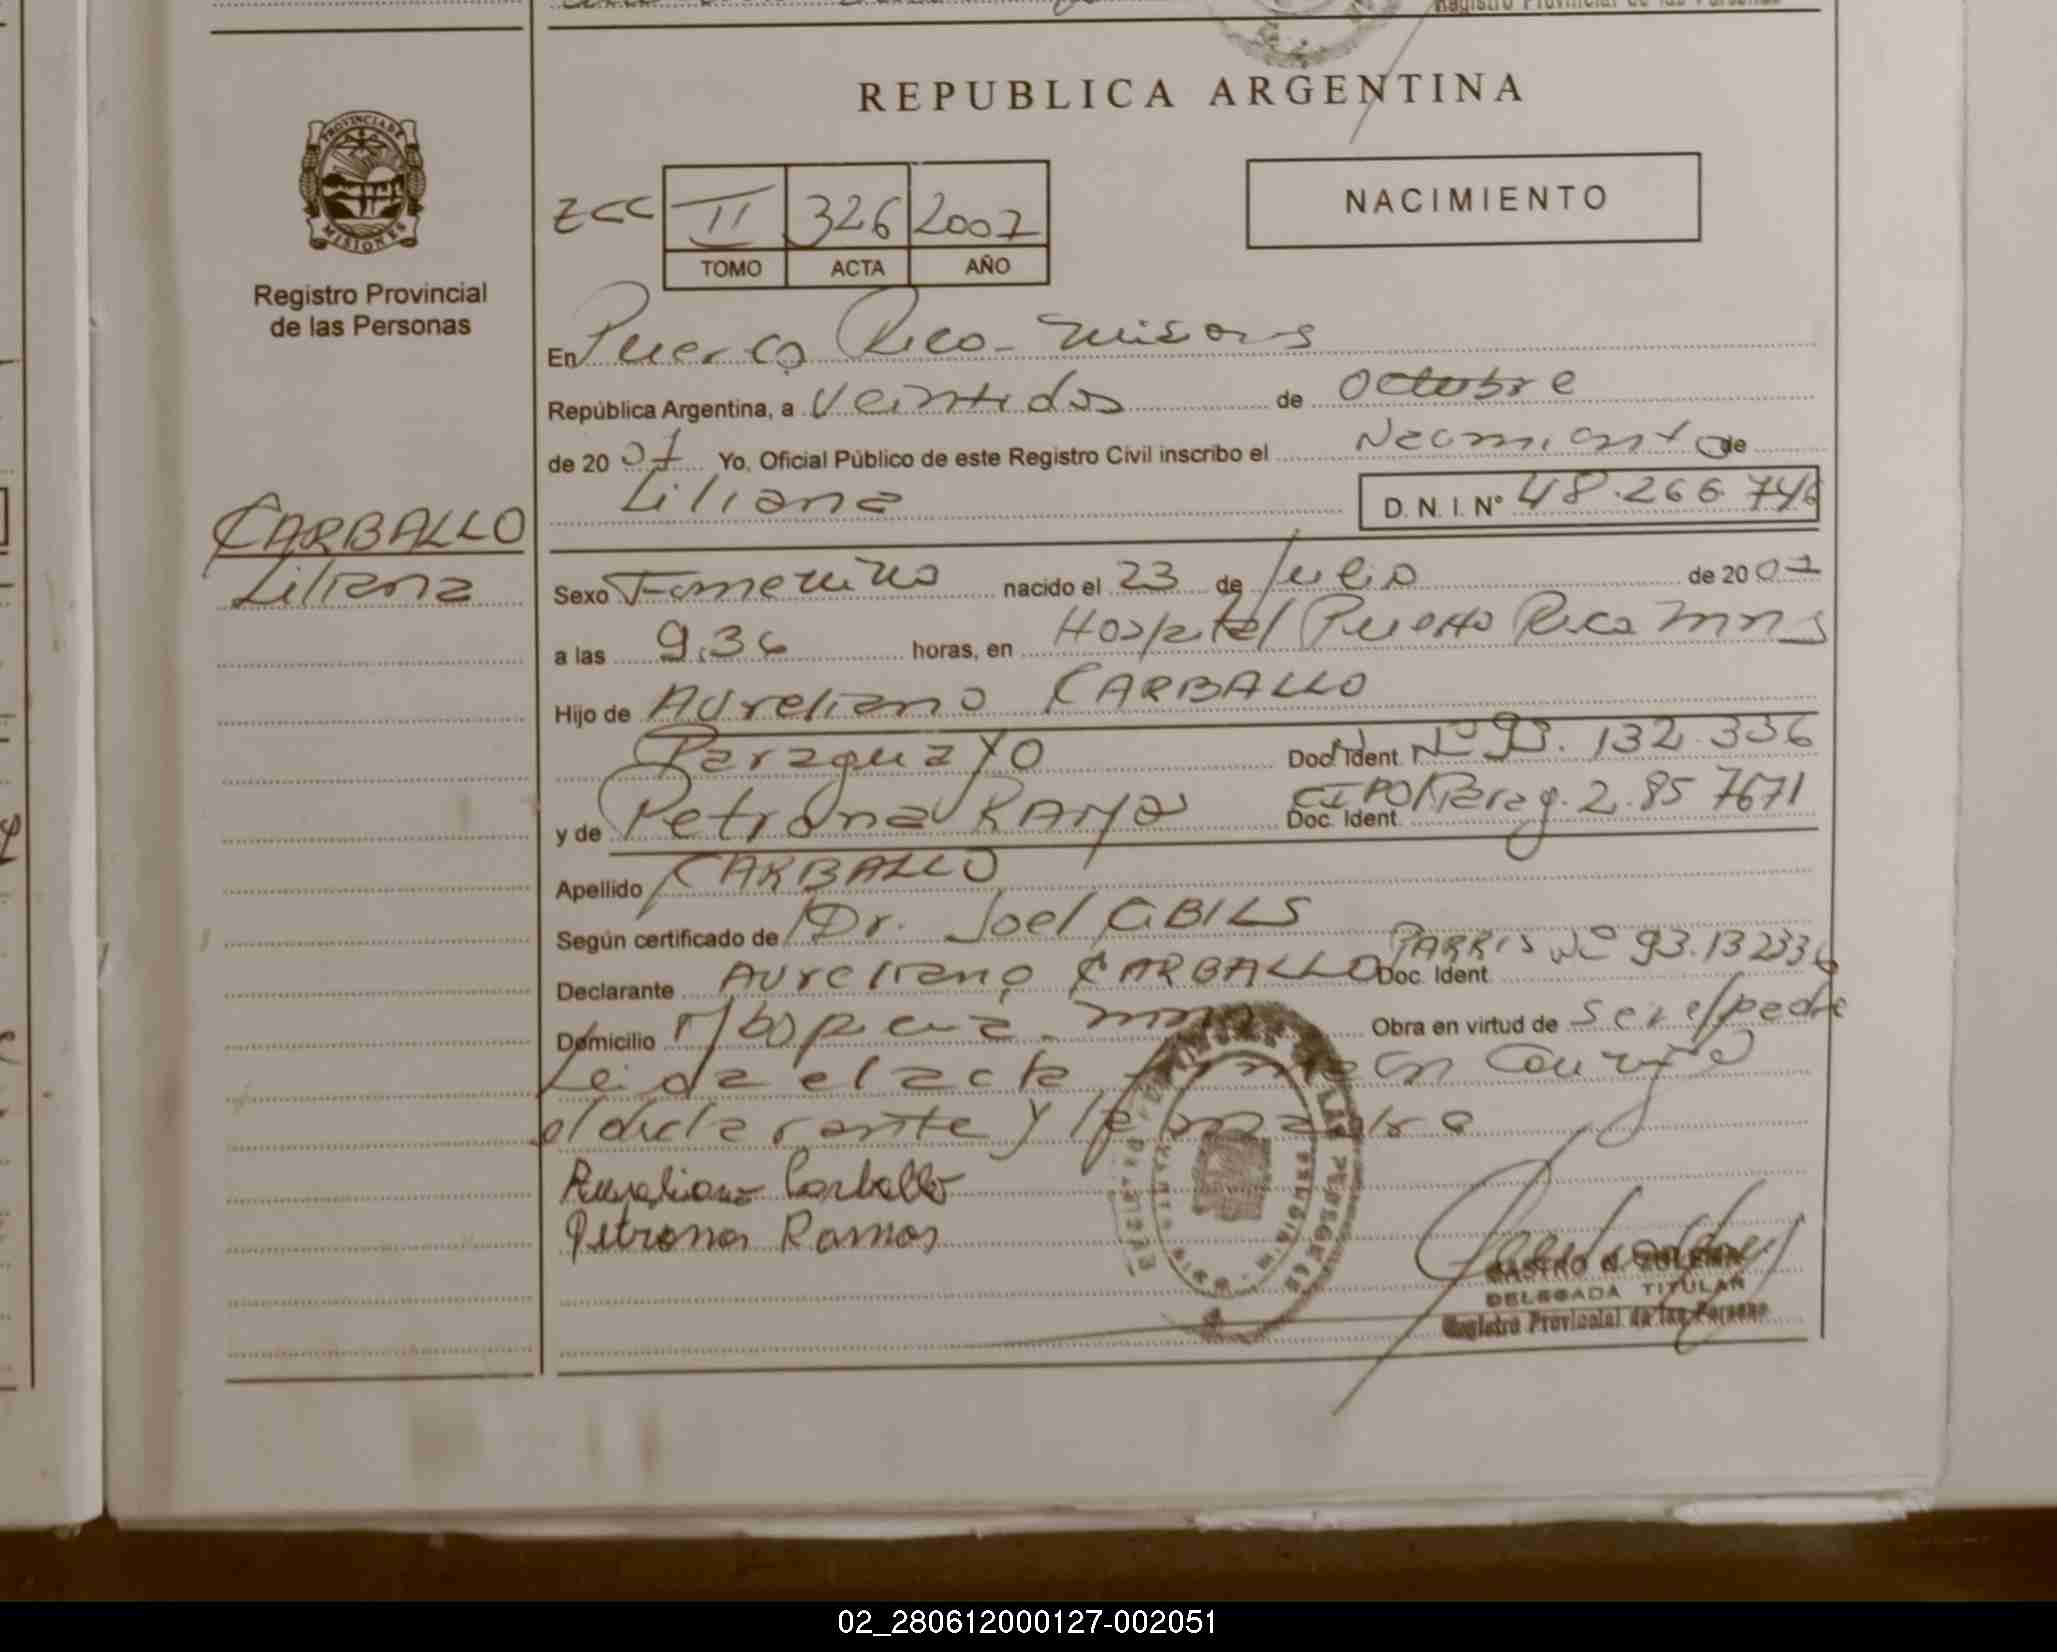 REPUBLICA ARGENTINA
PROVINCIA DE
MISIONES
Registro Provincial
de las Personas
II 326 2007
TOMO ACTA AÑO
NACIMIENTO
En Puerto Rico - Misiones
República Argentina, a veintidos de octubre
de 2007 Yo, Oficial Público de este Registro Civil inscribo el Nacimiento de
Liliana D. N. I. N° 48.266.746
CARBALLO
Liliana
Sexo Femenino nacido el 23 de Julio de 2007
a las 9,36 horas, en Hospital Puerto Rico Mnes
Hijo de Aureliano CARBALLO
Paraguayo Doc. Ident. N° 93.132.336
y de Petrona Doc. Ident. CIPOl Parag. 2.857671
Apellido CARBALLO
Según certificado de Dr. Joel
Declarante Aureliano CARBALLO Doc. Ident. N° 93.132336
Domicilio Obra en virtud de ser el padre
Leida el acta
el declarante y la madre
Aureliano Carballo
Petrona Ramos
DELEGADA TITULAR
Registro Provincial de las Personas
02_280612000127-002051